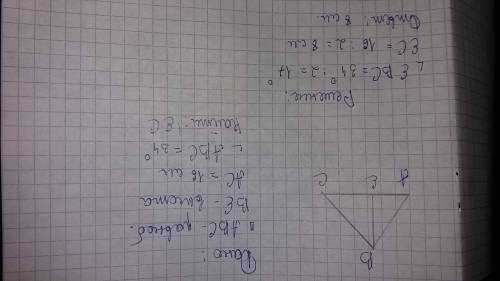 Дано:
△ABC - равноб.
BE - высота
AC = 16 см
∟ABC = 34°
Найти: EC
B
A
E
C
Решение:
∟EBC = 34° : 2 = 17°
EC = 16 : 2 = 8 см
Ответ: 8 см